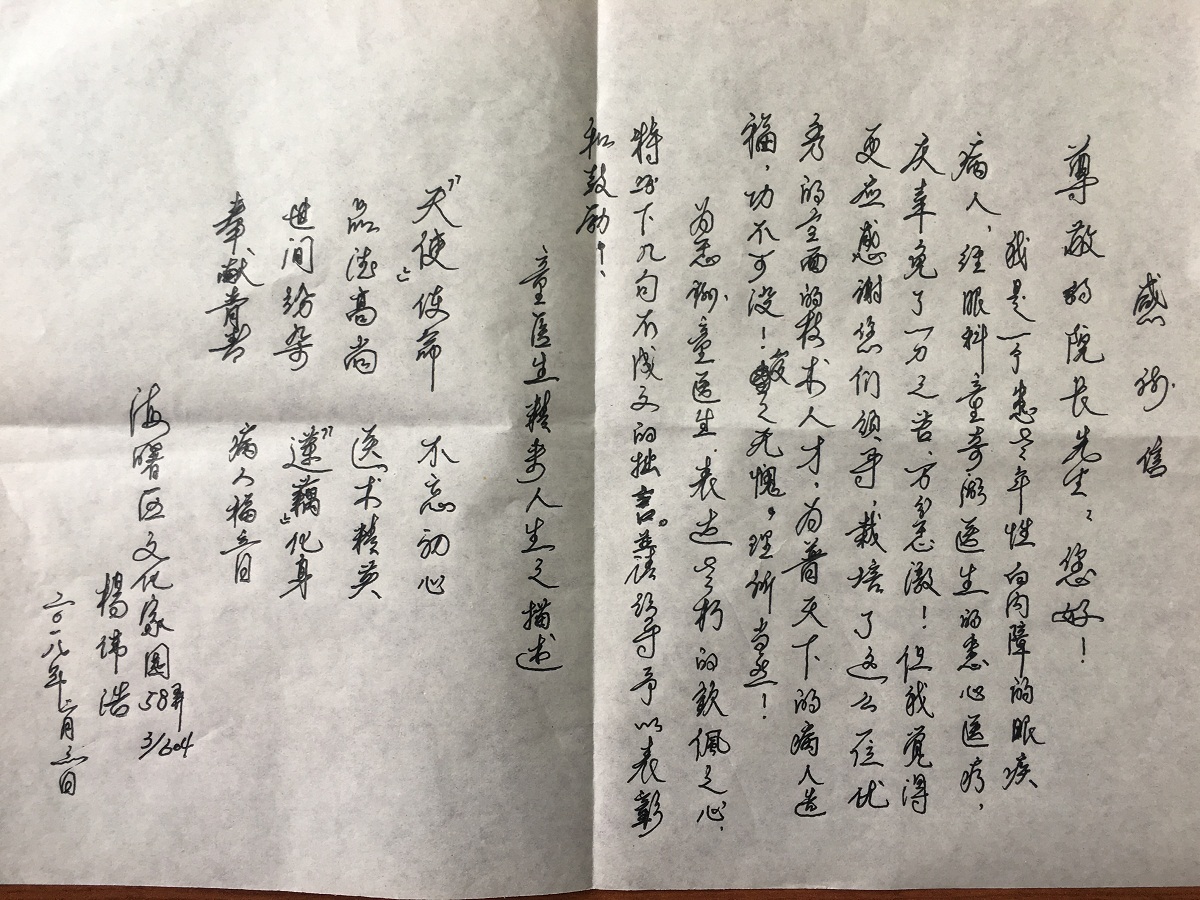 感谢信
尊敬的院长先生：您好！
我是一个患老年性白内障的眼疾
病人，经眼科童奇湖医生的悉心医疗，
庆幸免了一方之苦，万分感激！但我觉得
更应感谢您们领导，栽培了这么一位优
秀的全面的技术人才，为普天下的病人造
福，功不可没！敬之无愧，理所当然！
为感谢童医生，表达老朽的钦佩之心，
特以下几句不成文的拙言。恭请领导予以表彰
和鼓励！
童医生精彩人生之描述
“天使”使命 不忘初心
品德高尚 医术精英
世间纷杂 “莲藕”化身
奉献青春 病人福音
海曙区文化家园58弄
3/604
杨伟浩
二〇一八年二月三日